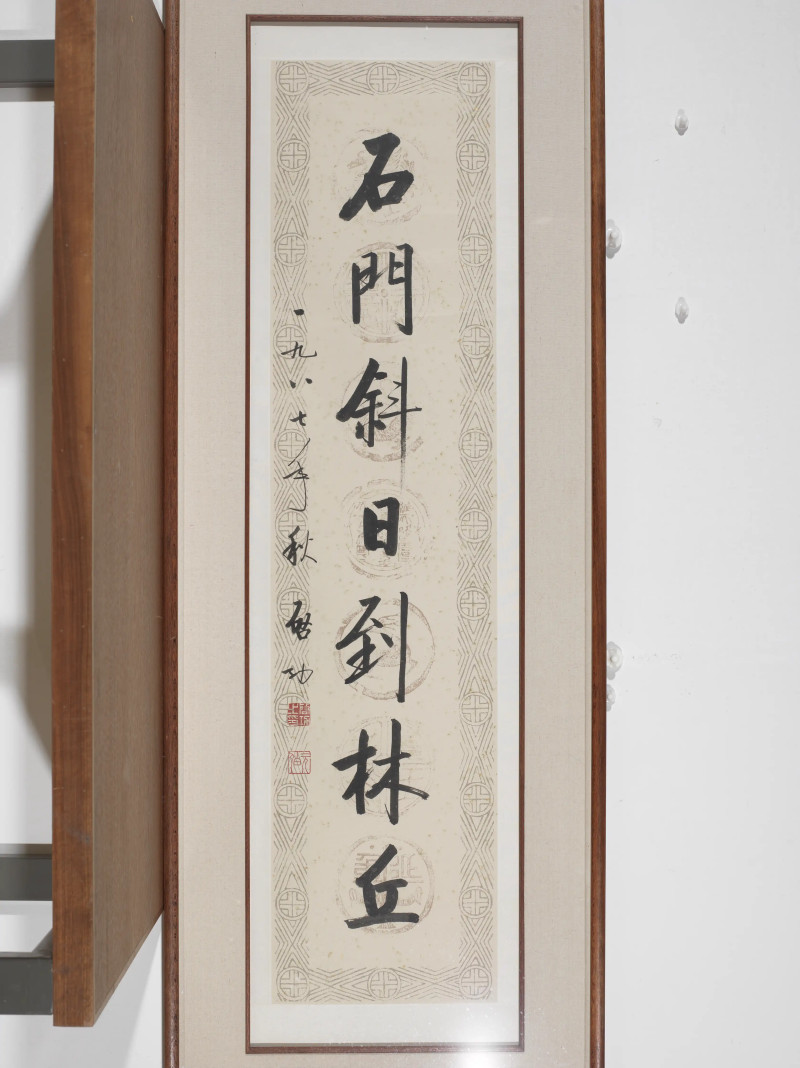 石門斜日到林丘
一九八七年秋 啓功